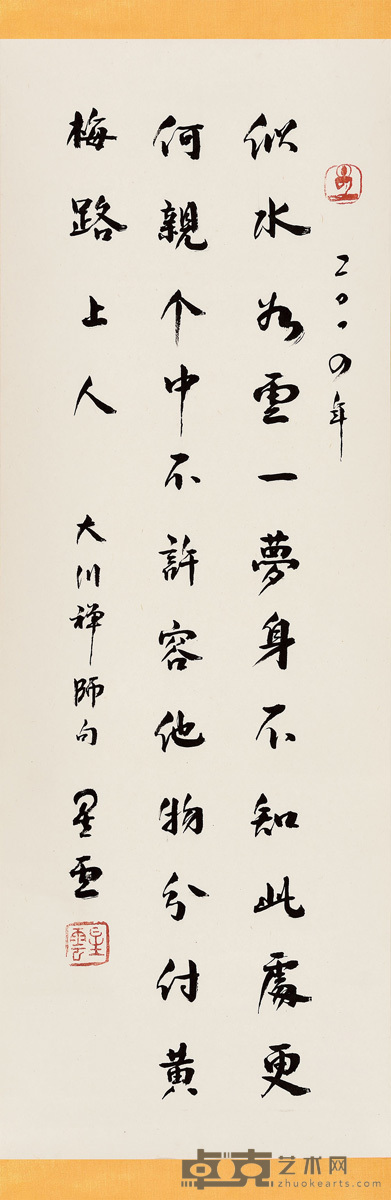 二〇一〇年
似水如雲一夢身不知此處更
何親个中不許容他物分付黃
梅路上人 大川禪師句 星雲
星雲
卓克艺术网
zhuokearts.com